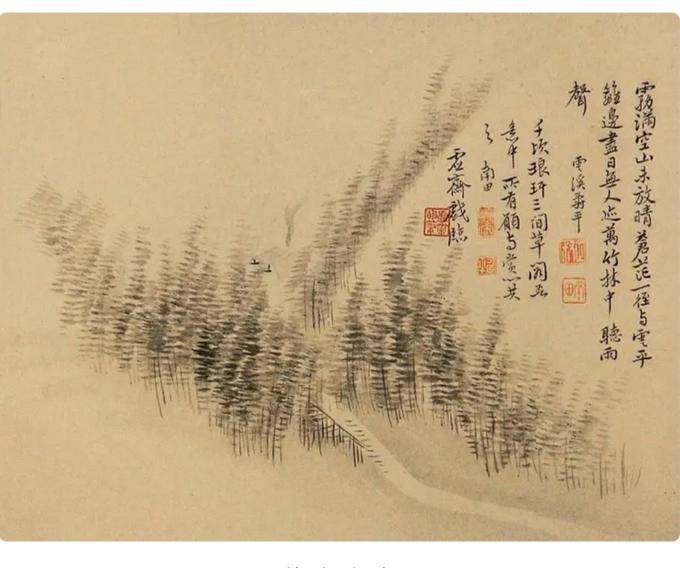 霧滿空山未放晴蒼茫一徑与雲平
籬邊盡日無人迹萬竹林中聽雨
聲
雲溪壽平
千頃琅玕三間草閣吾
意中所有願与賞心共
之 南田
虛齋戲臨